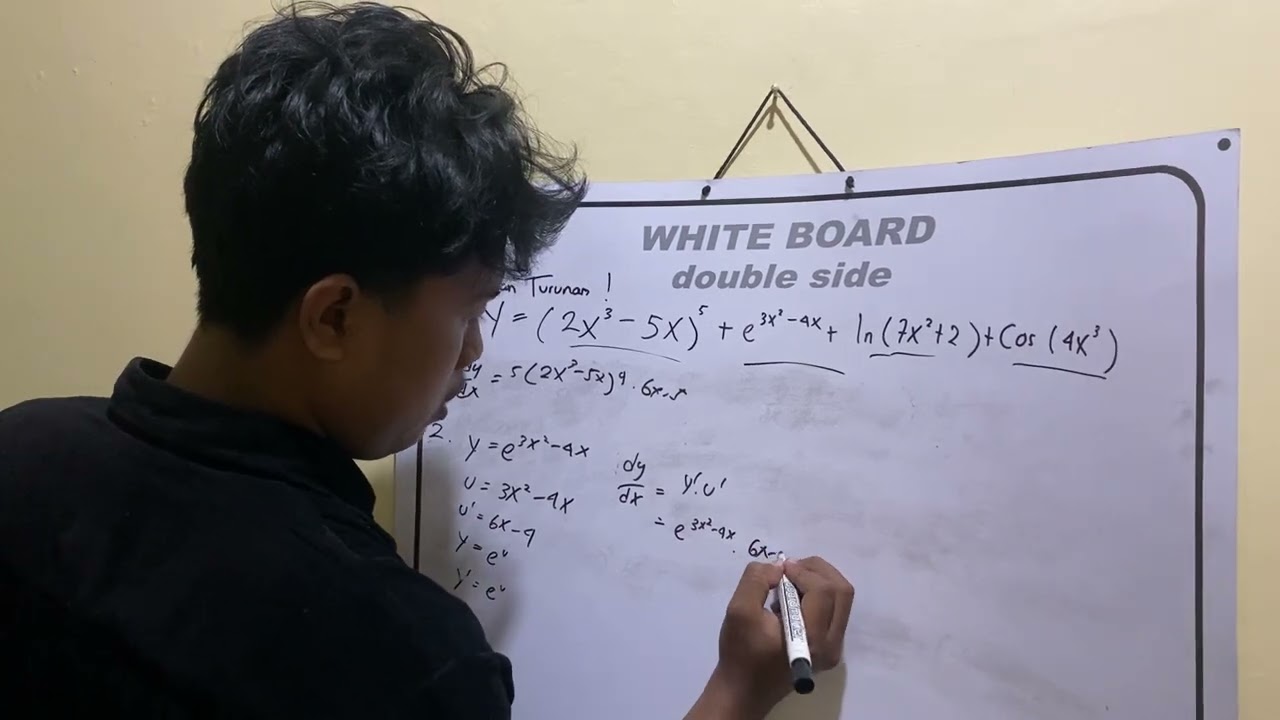 WHITE BOARD
double side
Turunan !
Y = (2x³ - 5x)⁵ + e^{3x² - 4x} + ln (7x² + 2) + Cos (4x³)
dy/dx = 5(2x³-5x)⁴ . 6x-5
2. Y = e^{3x² - 4x}
U = 3x² - 4x
U' = 6x - 4
Y = e^u
Y' = e^u
dy/dx = Y'. U'
= e^{3x²-4x} . 6x-